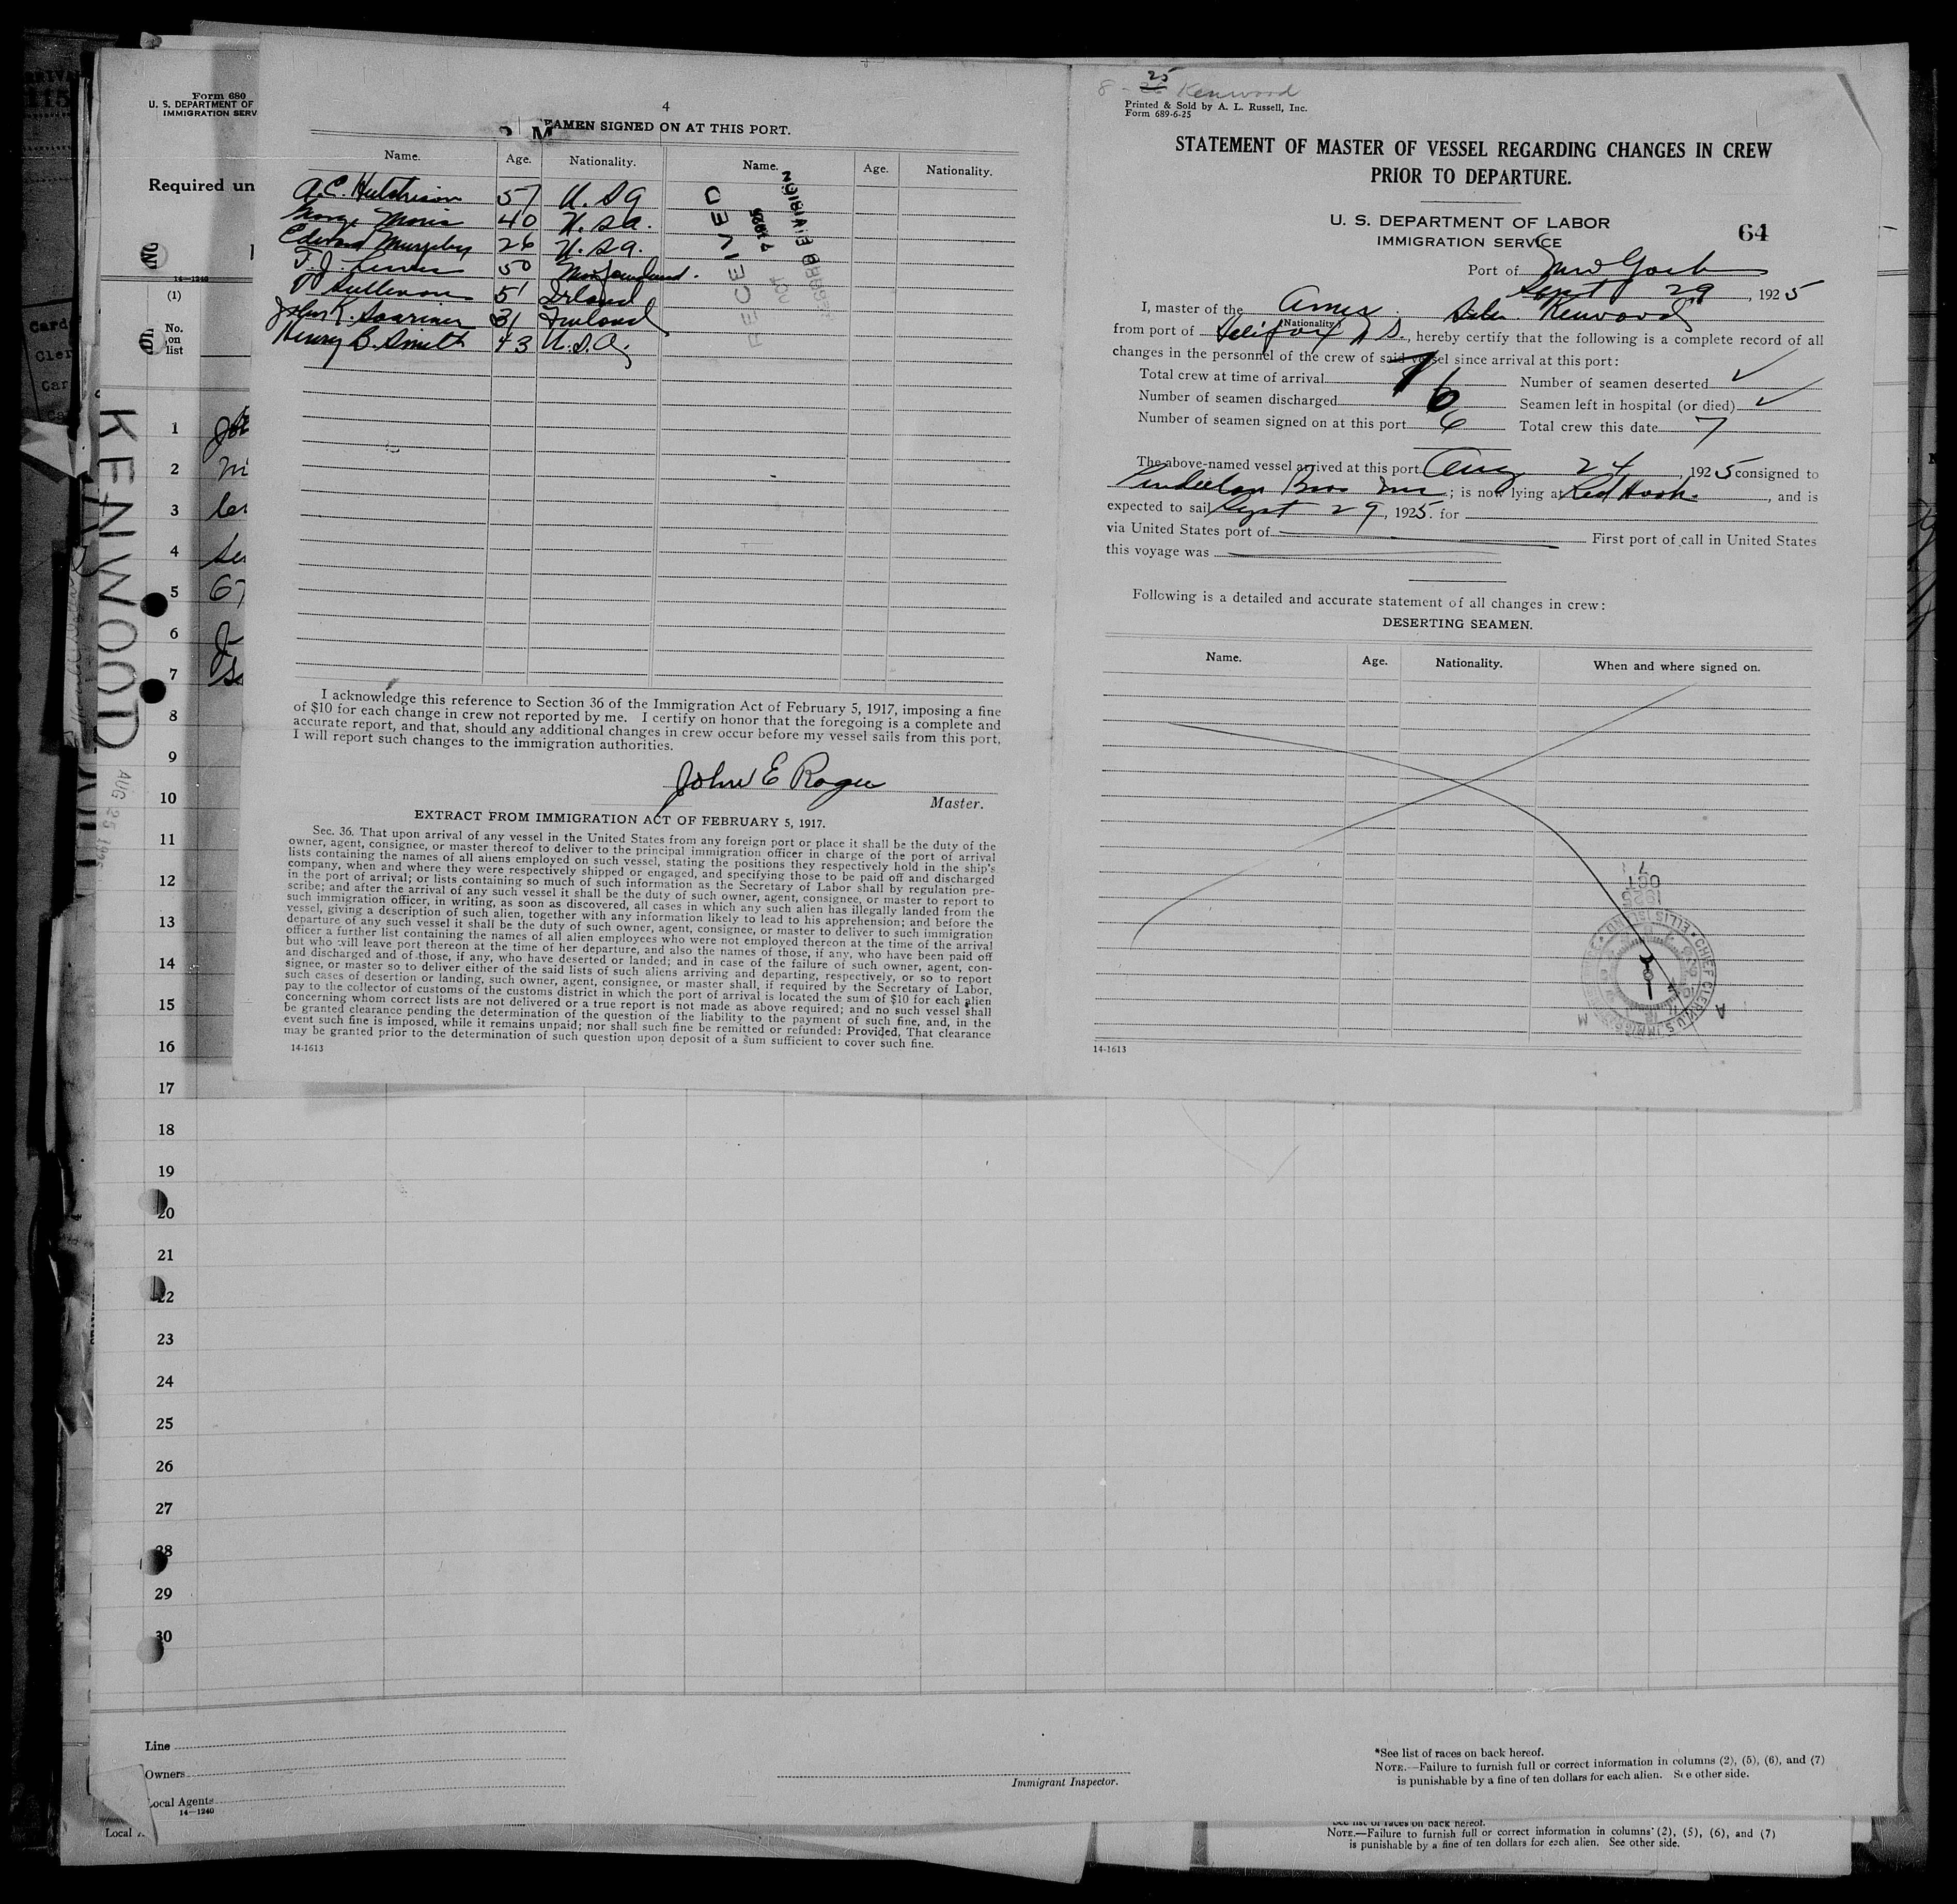 Form 680
U. S. DEPARTMENT OF
IMMIGRATION SERV
Required un
14—1240
(1)
No.
on
list
KENWOOD
AUG 25 1925
1
2
3
4
5
6
7
8
9
10
11
12
13
14
15
16
17
18
19
20
21
22
23
24
25
26
27
28
29
30
4
SEAMEN SIGNED ON AT THIS PORT.
Name. Age. Nationality. Name. Age. Nationality.
A.C. Hutchison 57 U. S A
George Morris 40 U. S A.
Edward Murphy 26 U. S A.
T. J. Lewis 50 Newfoundland.
P Sullivan 51 Irland
John K. Saarinen 31 Finland
Henry B. Smith 43 U. S. A.
RECEIVED
I acknowledge this reference to Section 36 of the Immigration Act of February 5, 1917, imposing a fine
of $10 for each change in crew not reported by me. I certify on honor that the foregoing is a complete and
accurate report, and that, should any additional changes in crew occur before my vessel sails from this port,
I will report such changes to the immigration authorities.
John E Roger
Master.
EXTRACT FROM IMMIGRATION ACT OF FEBRUARY 5, 1917.
Sec. 36. That upon arrival of any vessel in the United States from any foreign port or place it shall be the duty of the
owner, agent, consignee, or master thereof to deliver to the principal immigration officer in charge of the port of arrival
lists containing the names of all aliens employed on such vessel, stating the positions they respectively hold in the ship's
company, when and where they were respectively shipped or engaged, and specifying those to be paid off and discharged
in the port of arrival; or lists containing so much of such information as the Secretary of Labor shall by regulation pre-
scribe; and after the arrival of any such vessel it shall be the duty of such owner, agent, consignee, or master to report to
such immigration officer, in writing, as soon as discovered, all cases in which any such alien has illegally landed from the
vessel, giving a description of such alien, together with any information likely to lead to his apprehension; and before the
departure of any such vessel it shall be the duty of such owner, agent, consignee, or master to deliver to such immigration
officer a further list containing the names of all alien employees who were not employed thereon at the time of the arrival
but who will leave port thereon at the time of her departure, and also the names of those, if any, who have been paid off
and discharged and of those, if any, who have deserted or landed; and in case of the failure of such owner, agent, con-
signee, or master so to deliver either of the said lists of such aliens arriving and departing, respectively, or so to report
such cases of desertion or landing, such owner, agent, consignee, or master shall, if required by the Secretary of Labor,
pay to the collector of customs of the customs district in which the port of arrival is located the sum of $10 for each alien
concerning whom correct lists are not delivered or a true report is not made as above required; and no such vessel shall
be granted clearance pending the determination of the question of the liability to the payment of such fine, and, in the
event such fine is imposed, while it remains unpaid; nor shall such fine be remitted or refunded: Provided, That clearance
may be granted prior to the determination of such question upon deposit of a sum sufficient to cover such fine.
14-1613
8 - 25 Kenwood
Printed & Sold by A. L. Russell, Inc.
Form 689-6-25
STATEMENT OF MASTER OF VESSEL REGARDING CHANGES IN CREW
PRIOR TO DEPARTURE.
U. S. DEPARTMENT OF LABOR
IMMIGRATION SERVICE
64
Port of New York
Sept 29, 1925
I, master of the Amer. Schr. Kenwood
(Nationality)
from port of Halifax N S., hereby certify that the following is a complete record of all
changes in the personnel of the crew of said vessel since arrival at this port:
Total crew at time of arrival 7 Number of seamen deserted ✓
Number of seamen discharged 6 Seamen left in hospital (or died) ✓
Number of seamen signed on at this port 6 Total crew this date 7
The above-named vessel arrived at this port Aug 24, 1925 consigned to
Pendleton Bros Inc; is now lying at Red Hook, and is
expected to sail Sept 29, 1925. for
via United States port of First port of call in United States
this voyage was
Following is a detailed and accurate statement of all changes in crew:
DESERTING SEAMEN.
Name. Age. Nationality. When and where signed on.
OCT
1925
CHIEF CLERK U.S. IMMIGRATION SERVICE ELLIS ISLAND
A M
14-1613
Line
Owners
Local Agents
14—1240
Immigrant Inspector.
*See list of races on back hereof.
NOTE.—Failure to furnish full or correct information in columns (2), (5), (6), and (7)
is punishable by a fine of ten dollars for each alien. See other side.
Local
See list of races on back hereof.
NOTE.—Failure to furnish full or correct information in columns (2), (5), (6), and (7)
is punishable by a fine of ten dollars for each alien. See other side.